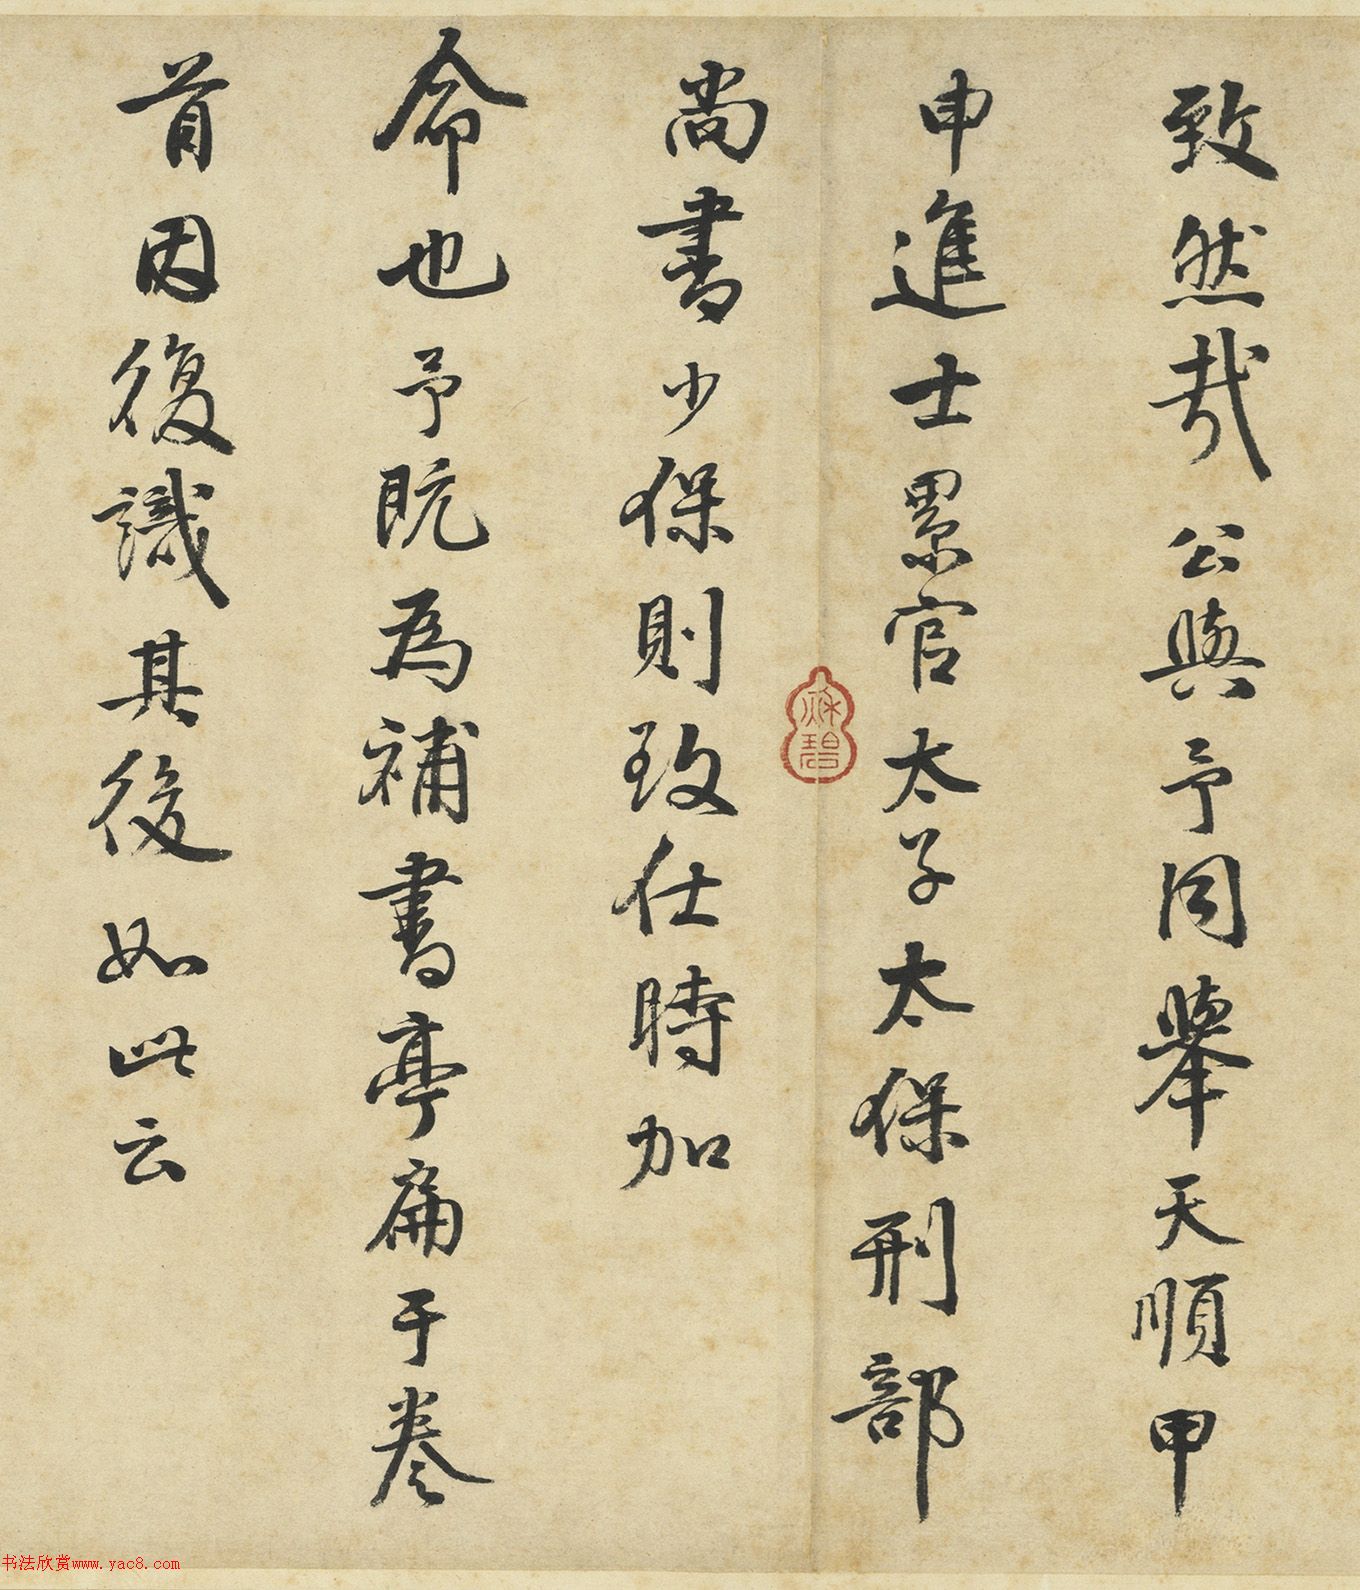 致然哉公與予同舉天順甲
申進士累官太子太保刑部
尚書少保則致仕時加
命也予既為補書亭扁于卷
首因復識其後如此云
书法欣赏www.yac8.com